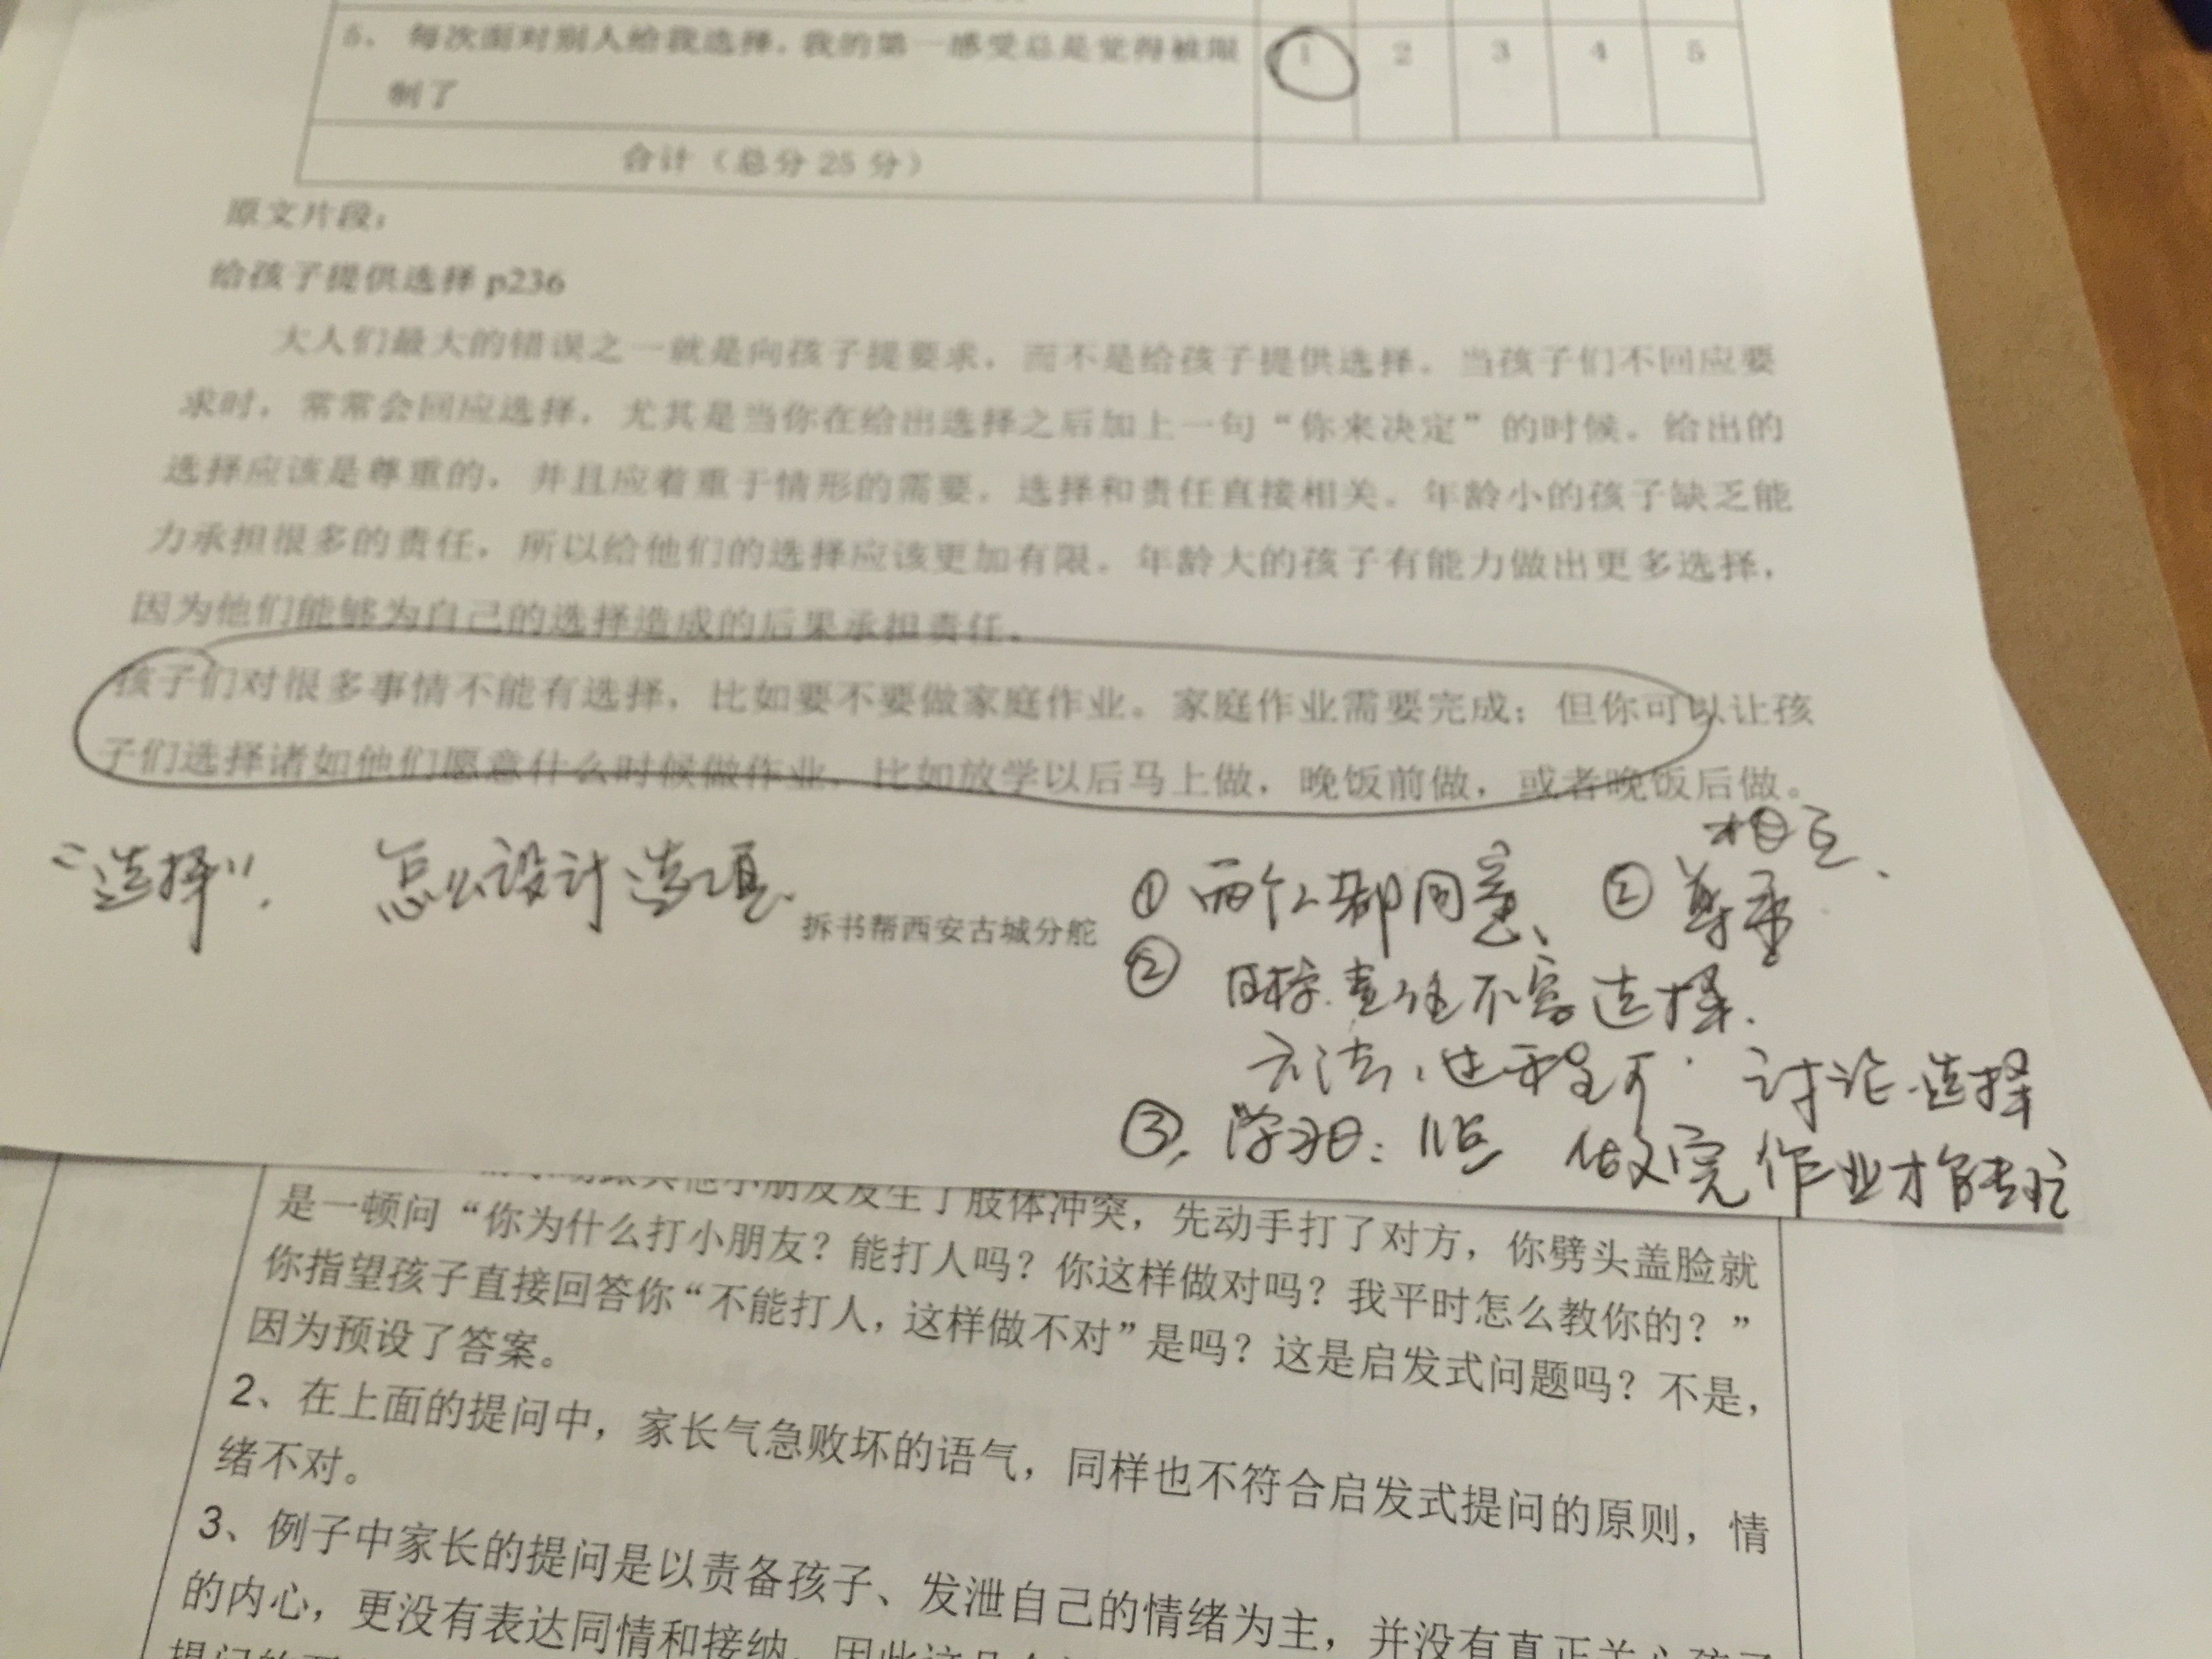 5、 每次面对别人给我选择，我的第一感受总是觉得被限 1 2 3 4 5
制了
合计（总分 25 分）
原文片段：
给孩子提供选择 p236
大人们最大的错误之一就是向孩子提要求，而不是给孩子提供选择。当孩子们不回应要
求时，常常会回应选择，尤其是当你在给出选择之后加上一句“你来决定”的时候。给出的
选择应该是尊重的，并且应着重于情形的需要。选择和责任直接相关。年龄小的孩子缺乏能
力承担很多的责任，所以给他们的选择应该更加有限。年龄大的孩子有能力做出更多选择，
因为他们能够为自己的选择造成的后果承担责任。
孩子们对很多事情不能有选择，比如要不要做家庭作业。家庭作业需要完成；但你可以让孩
子们选择诸如他们愿意什么时候做作业，比如放学以后马上做，晚饭前做，或者晚饭后做。
“选择”. 怎么设计选项.
拆书帮西安古城分舵
① 两个都同意、 ② 相互、尊重
② 目标.责任不容选择.
方法、过程可 讨论.选择
③. 学习日: 11点 做完作业才能去玩
发生了肢体冲突，先动手打了对方，你劈头盖脸就
是一顿问“你为什么打小朋友？能打人吗？你这样做对吗？我平时怎么教你的？”
你指望孩子直接回答你“不能打人，这样做不对”是吗？这是启发式问题吗？不是，
因为预设了答案。
2、在上面的提问中，家长气急败坏的语气，同样也不符合启发式提问的原则，情
绪不对。
3、例子中家长的提问是以责备孩子、发泄自己的情绪为主，并没有真正关心孩子
的内心，更没有表达同情和接纳，因此这